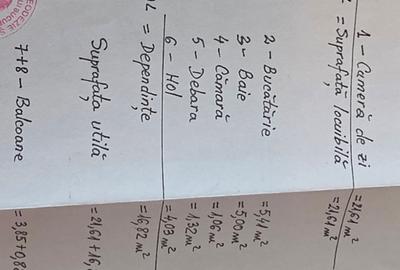 1 - Cameră de zi = 21,61 m²
= Suprafață locuibilă = 21,61 m²
2 - Bucătărie = 5,41 m²
3 - Baie = 5,00 m²
4 - Cămară = 1,06 m²
5 - Debara = 1,32 m²
6 - Hol = 4,03 m²
= Dependințe = 16,82 m²
Suprafața utilă = 21,61 + 16,
7+8 - Balcoane = 3,85 + 0,8